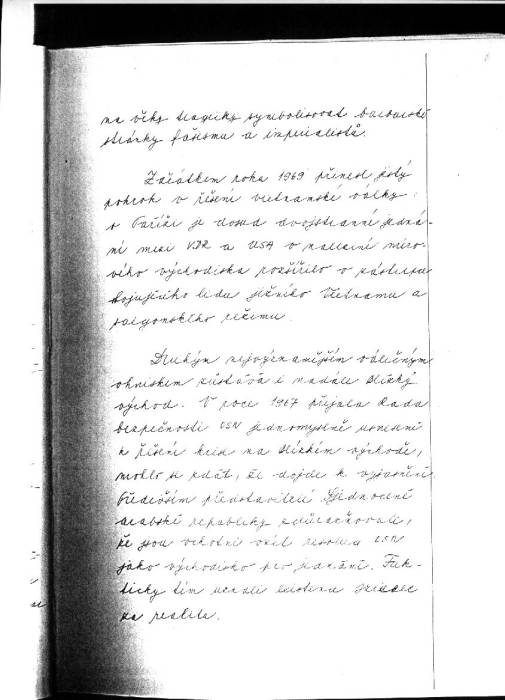 na věky tragicky symbolisovat barbarské
stránky fašismu a imperialistů.
Začátkem roku 1969 přinesl jistý
pokrok v řešení vietnamské války:
v Paříži je dosud dvojstranné jedná-
ní mezi VDR a USA o nalezení míro-
vého východiska rozšířilo o zástupce
bojujícího lidu jižního Vietnamu a
saigonského režimu.
Druhým nejvýznamějším válečným
ohniskem zůstává i nadále Blízký
východ. V roce 1967 přijala Rada
bezpečnosti OSN jednomyslně usnesení
k řešení krize na Blízkém východě,
mohlo se zdát, že dojde k vyjasnění.
Především představitelé Sjednocené
arabské republiky zdůrazňovali,
že jsou ochotni vzít resoluci OSN
jako východisko pro jednání. Fak-
ticky tím uznali existenci Izraele
za realitu.